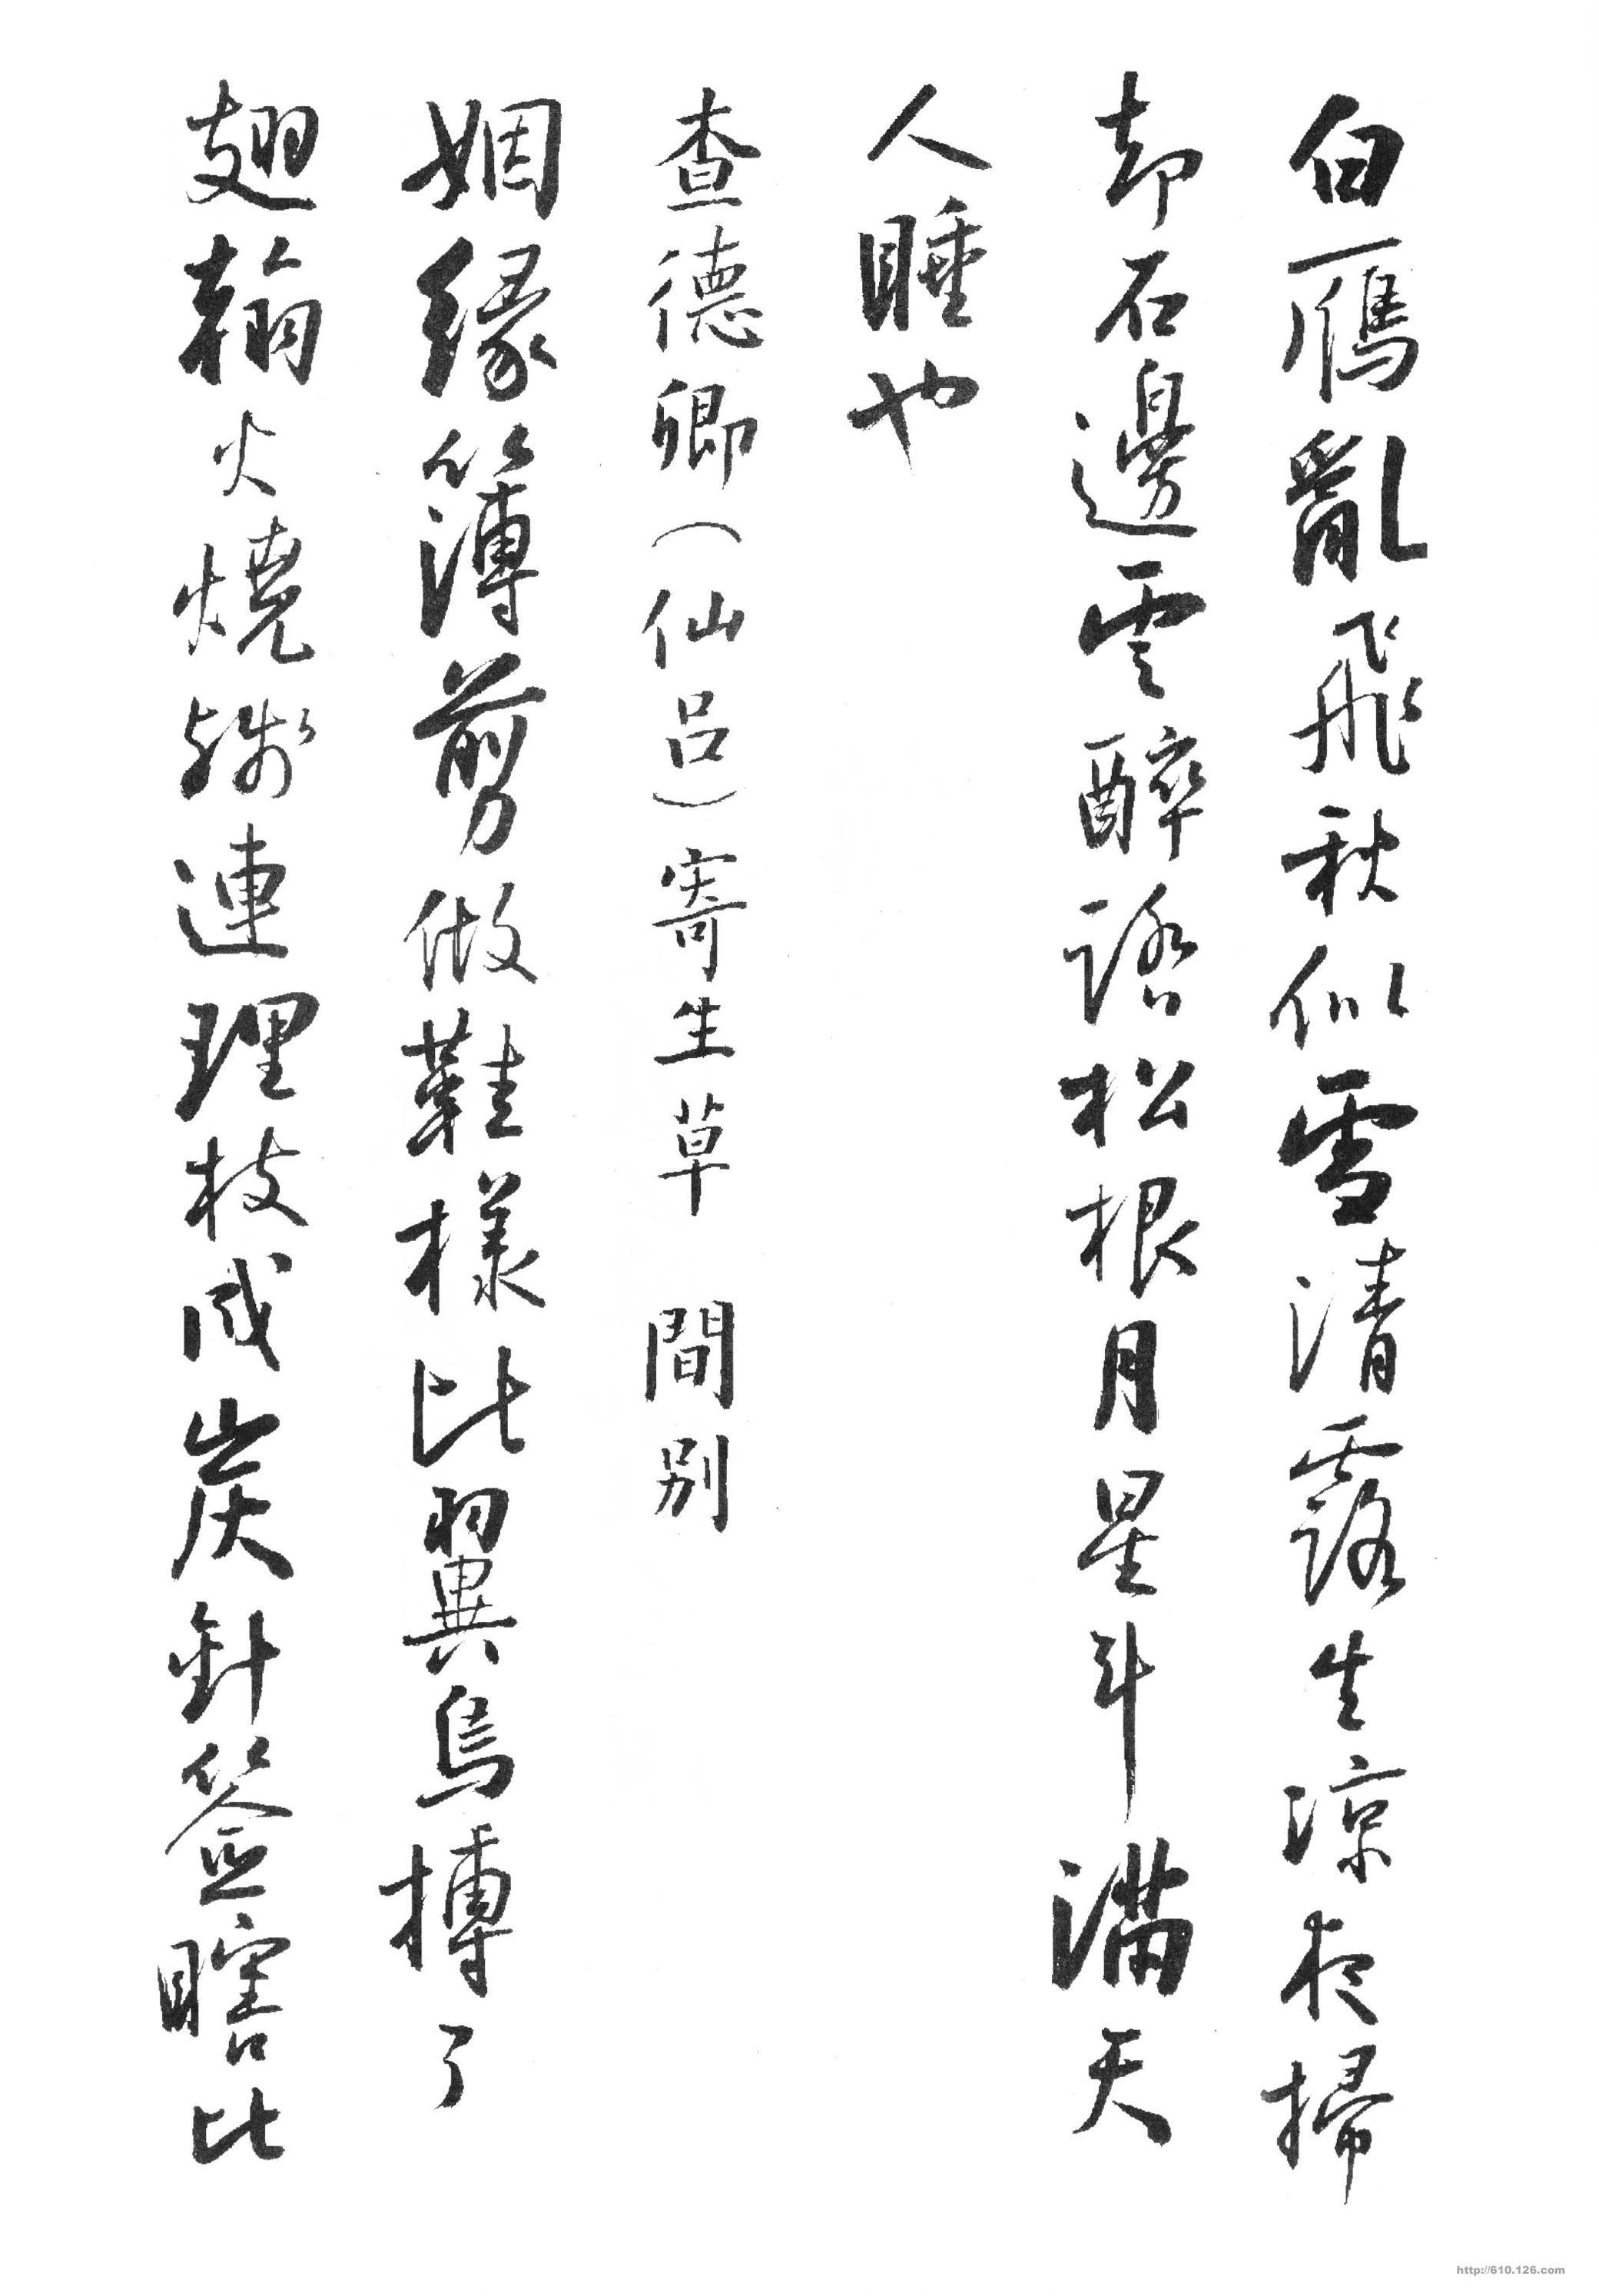 白鴈亂飛秋似雪清露生涼夜掃
却石邊雲醉踏松根月星斗滿天
人睡也
查德卿(仙呂)寄生草 間別
姻緣簿剪做鞋樣比翼鳥搏了
翅翰火燒殘連理枝成炭針簽瞎比
http://610.126.com